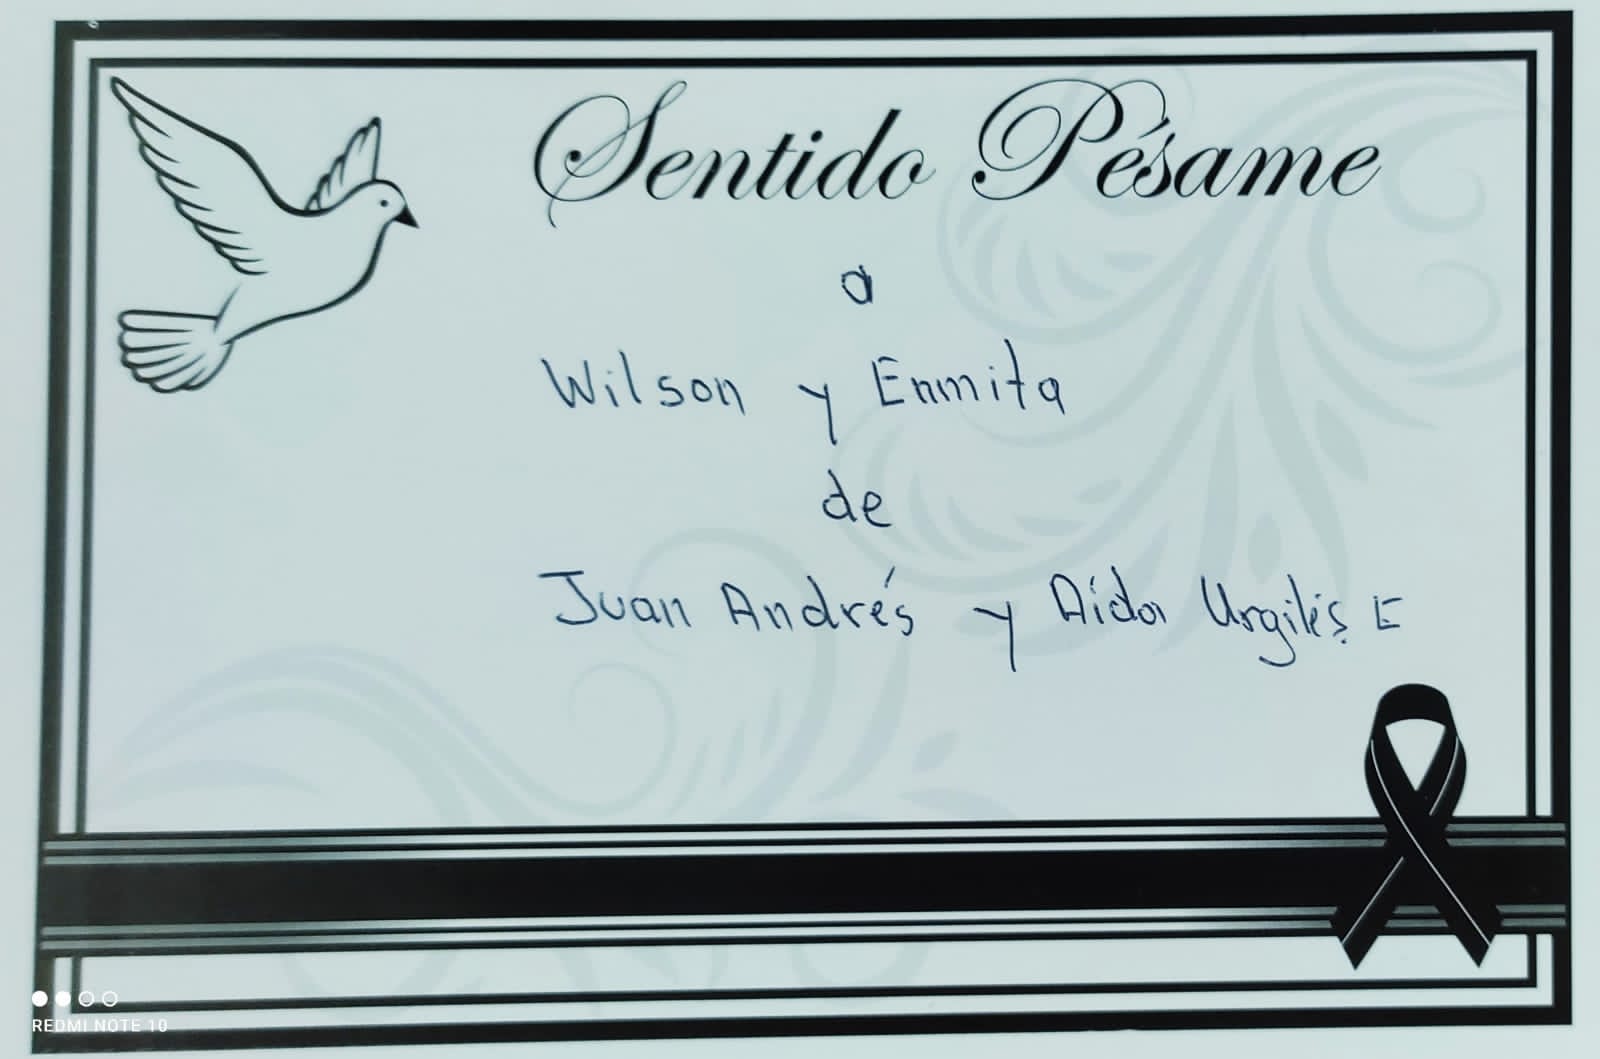 Sentido Pésame
a
Wilson y Enmita
de
Juan Andrés y Aída Urgilés E
REDMI NOTE 10